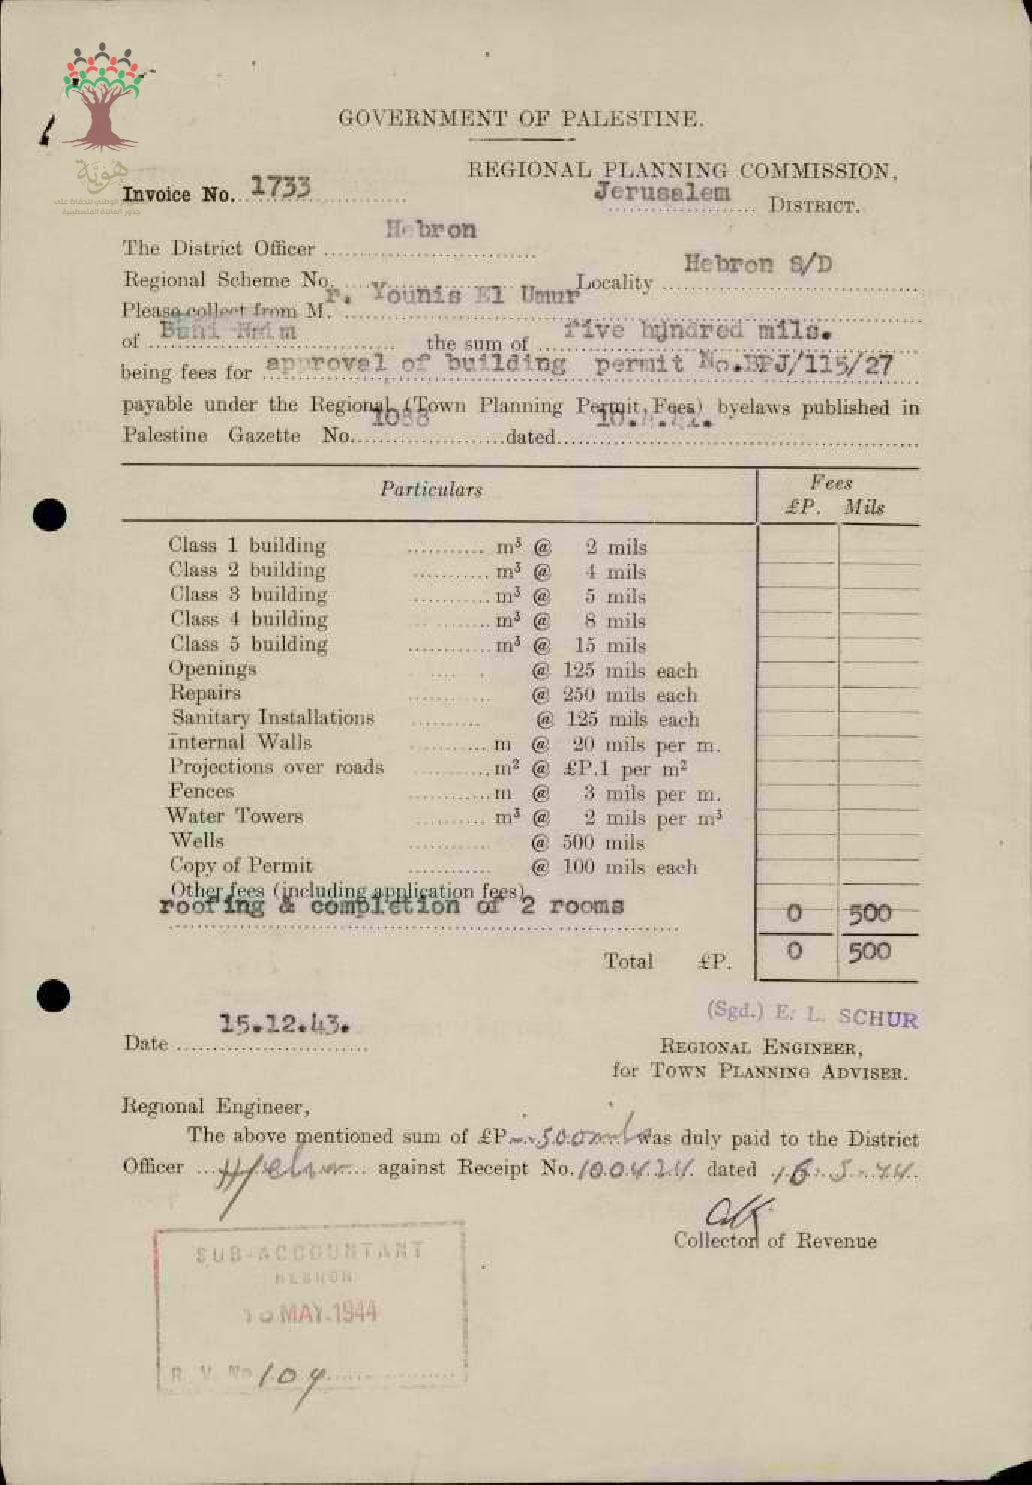 هوية
GOVERNMENT OF PALESTINE.
REGIONAL PLANNING COMMISSION,
Invoice No. 1733
Jerusalem DISTRICT.
The District Officer Hebron
Regional Scheme No. Locality Hebron S/D
Please collect from M. r. Younis El Umur
of Bani Naim the sum of five hundred mils.
being fees for approval of building permit No.BPJ/115/27
payable under the Regional (Town Planning Permit Fees) byelaws published in
Palestine Gazette No. 1088 dated
Particulars Fees
£P. Mils
Class 1 building m³ @ 2 mils
Class 2 building m³ @ 4 mils
Class 3 building m³ @ 5 mils
Class 4 building m³ @ 8 mils
Class 5 building m³ @ 15 mils
Openings @ 125 mils each
Repairs @ 250 mils each
Sanitary Installations @ 125 mils each
Internal Walls m @ 20 mils per m.
Projections over roads m² @ £P.1 per m²
Fences m @ 3 mils per m.
Water Towers m³ @ 2 mils per m³
Wells @ 500 mils
Copy of Permit @ 100 mils each
Other fees (including application fees)
roofing & completion of 2 rooms 0 500
Total £P. 0 500
(Sgd.) E. L. SCHUR
Date 15.12.43.
REGIONAL ENGINEER,
for TOWN PLANNING ADVISER.
Regional Engineer,
The above mentioned sum of £P. 500 mils was duly paid to the District
Officer Hebron against Receipt No. 100424 dated 16.5.44.
Collector of Revenue
SUB-ACCOUNTANT
HEBRON
MAY.1944
R. V. No 109